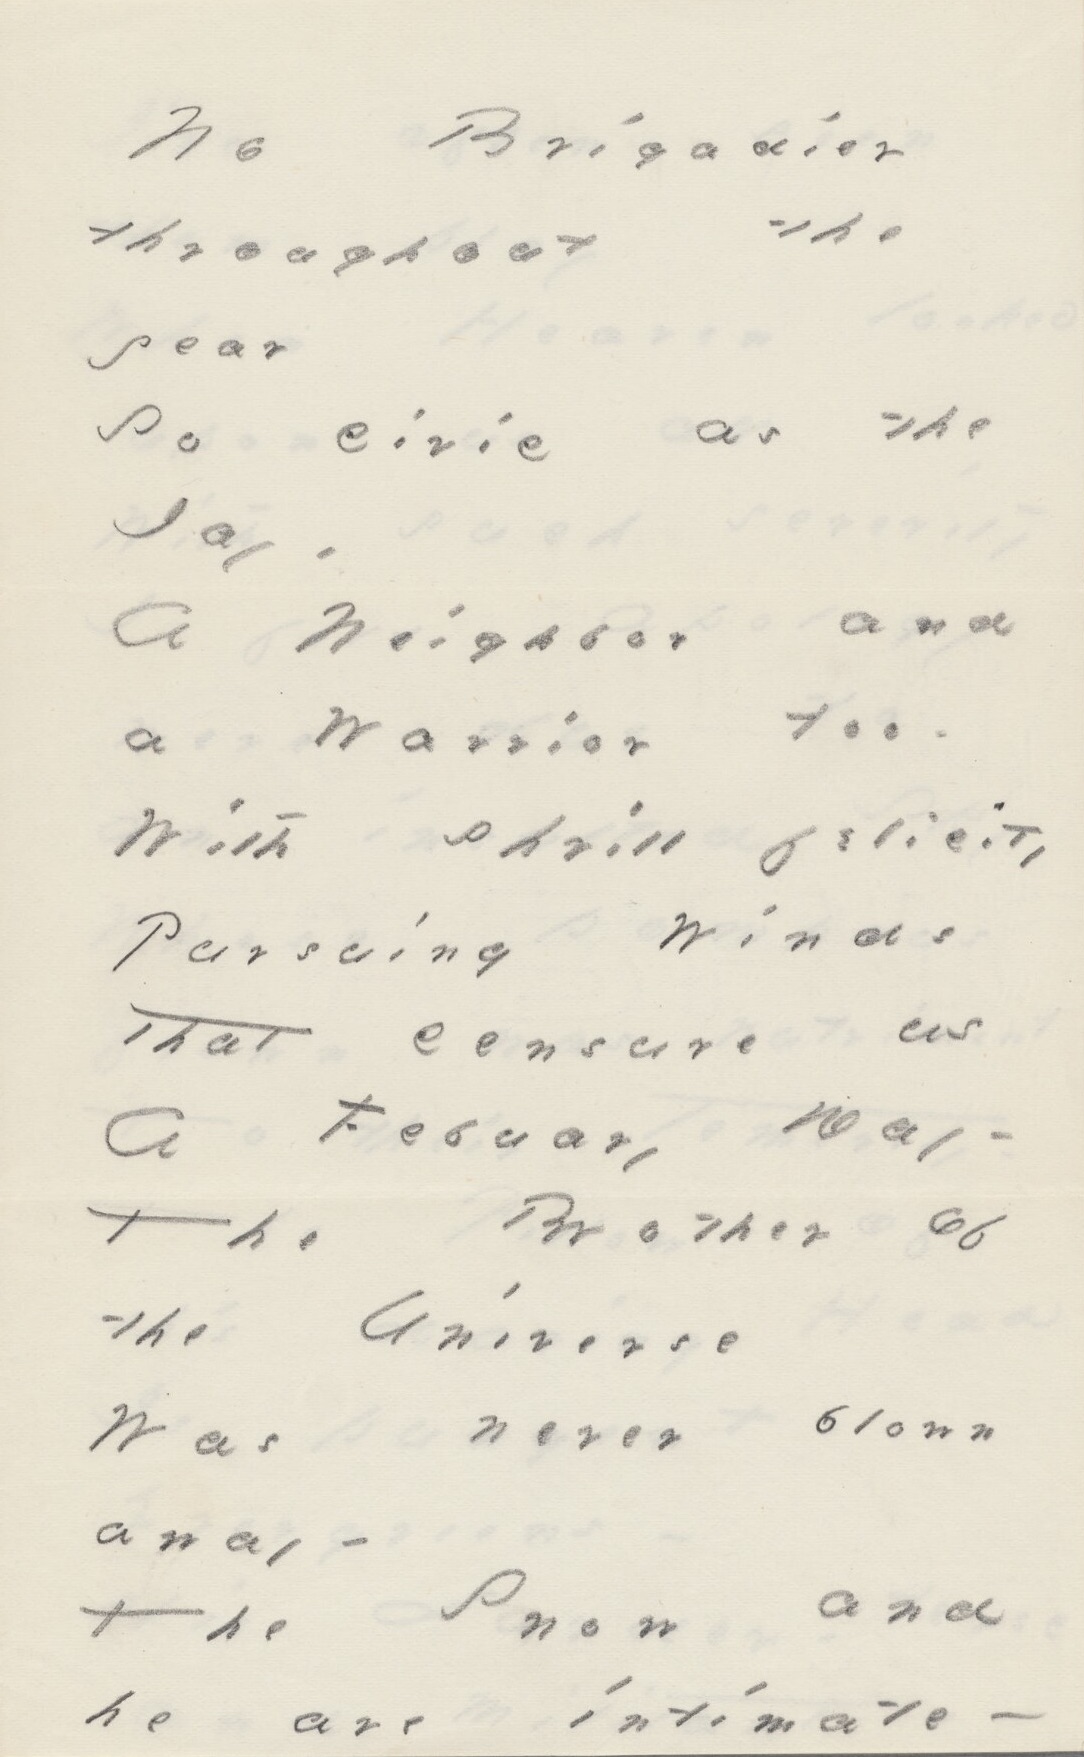 No Brigadier
throughout the
year
So civic as the
Jay.
A Neighbor and
a Warrior too.
With shrill felicity
Pursuing Winds
That censure us
A Febuary Day -
The Brother of
the Universe
Was never blown
away -
The Snow and
he are intimate -